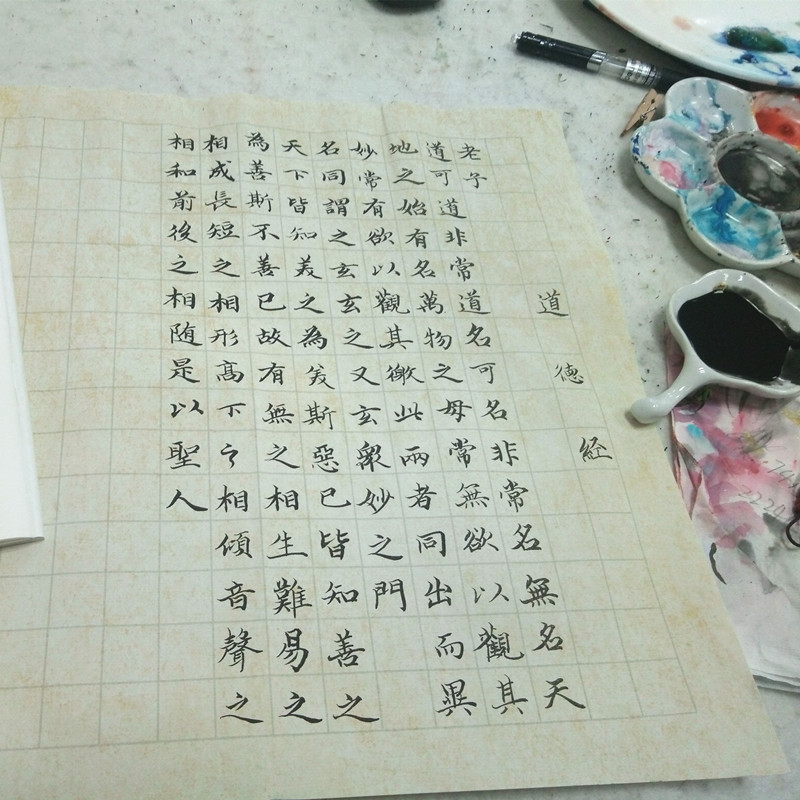 道德経
老子
道可道非常道名可名非常名無名天
地之始有名萬物之母常無欲以觀其
妙常有欲以觀其徼此兩者同出而異
名同謂之玄玄之又玄衆妙之門
天下皆知美之為美斯惡已皆知善之
為善斯不善已故有無之相生難易之
相成長短之相形髙下之相傾音聲之
相和前後之相随是以聖人